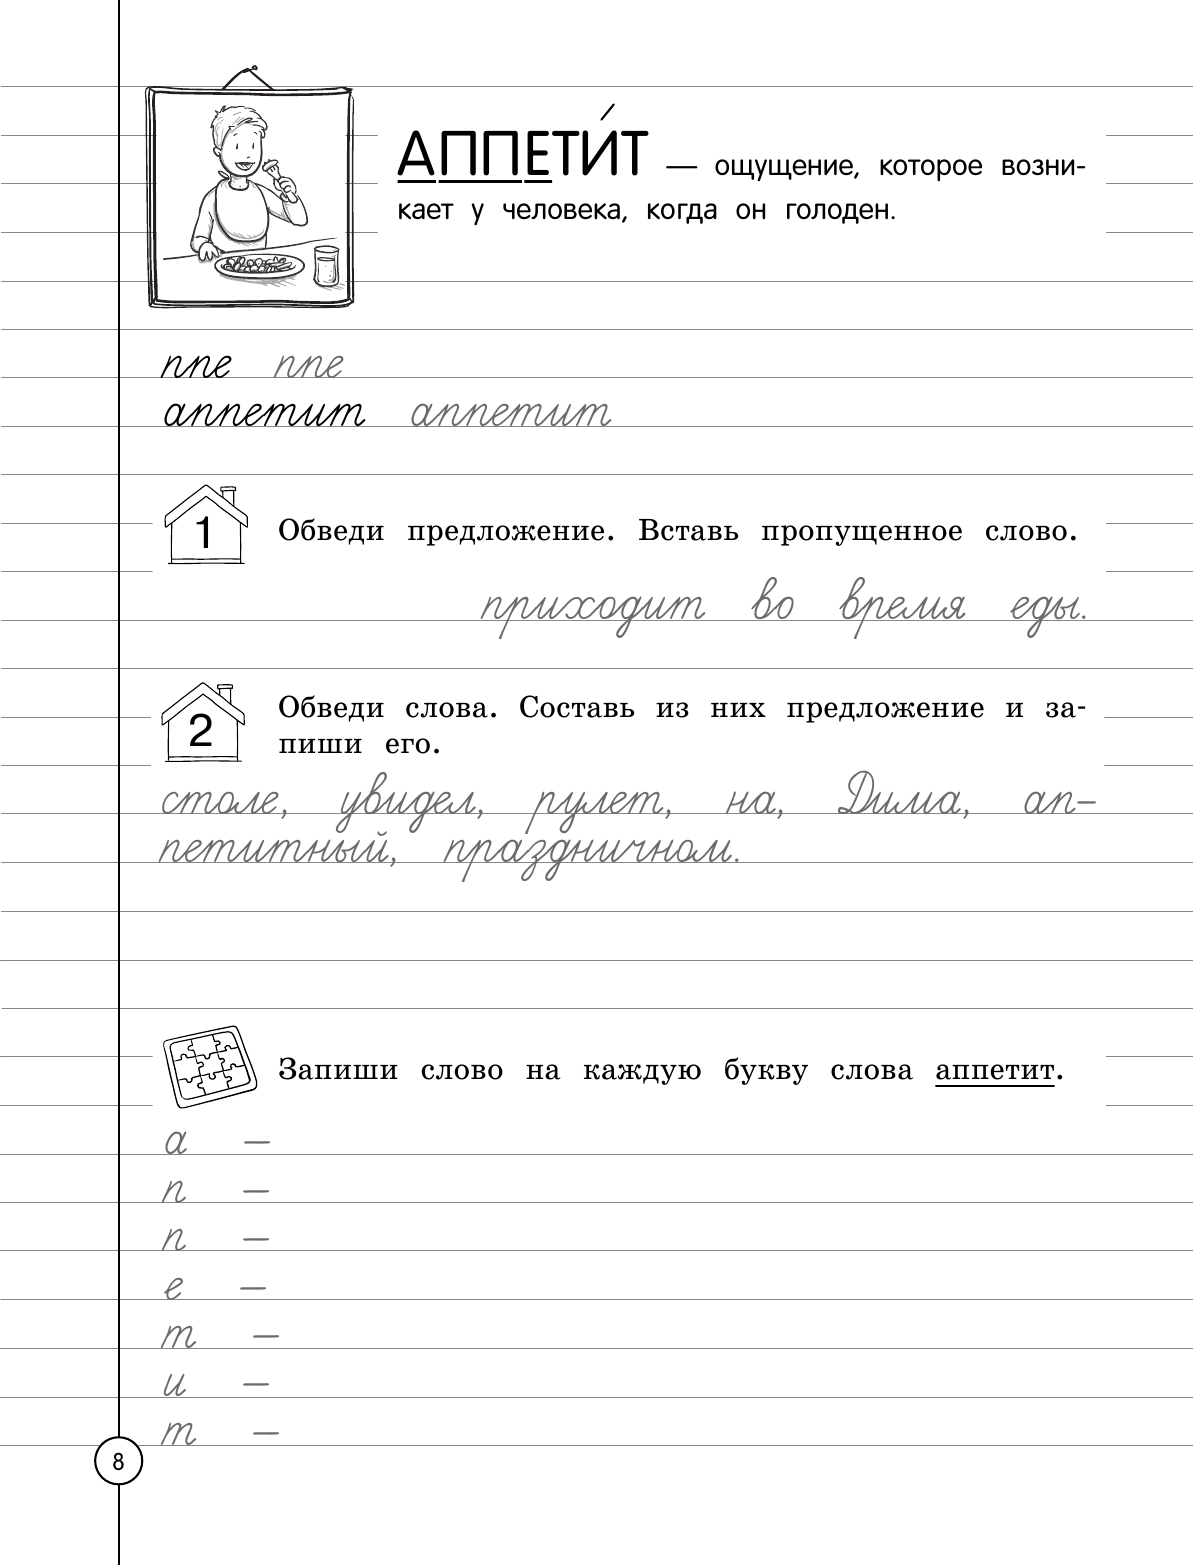 АППЕТИ́Т — ощущение, которое возни-
кает у человека, когда он голоден.
ппе ппе
аппетит аппетит
1 Обведи предложение. Вставь пропущенное слово.
приходит во время еды.
2 Обведи слова. Составь из них предложение и за-
пиши его.
столе, увидел, рулет, на, Дима, ап-
петитный, праздничном.
Запиши слово на каждую букву слова аппетит.
а –
п –
п –
е –
т –
и –
т –
8